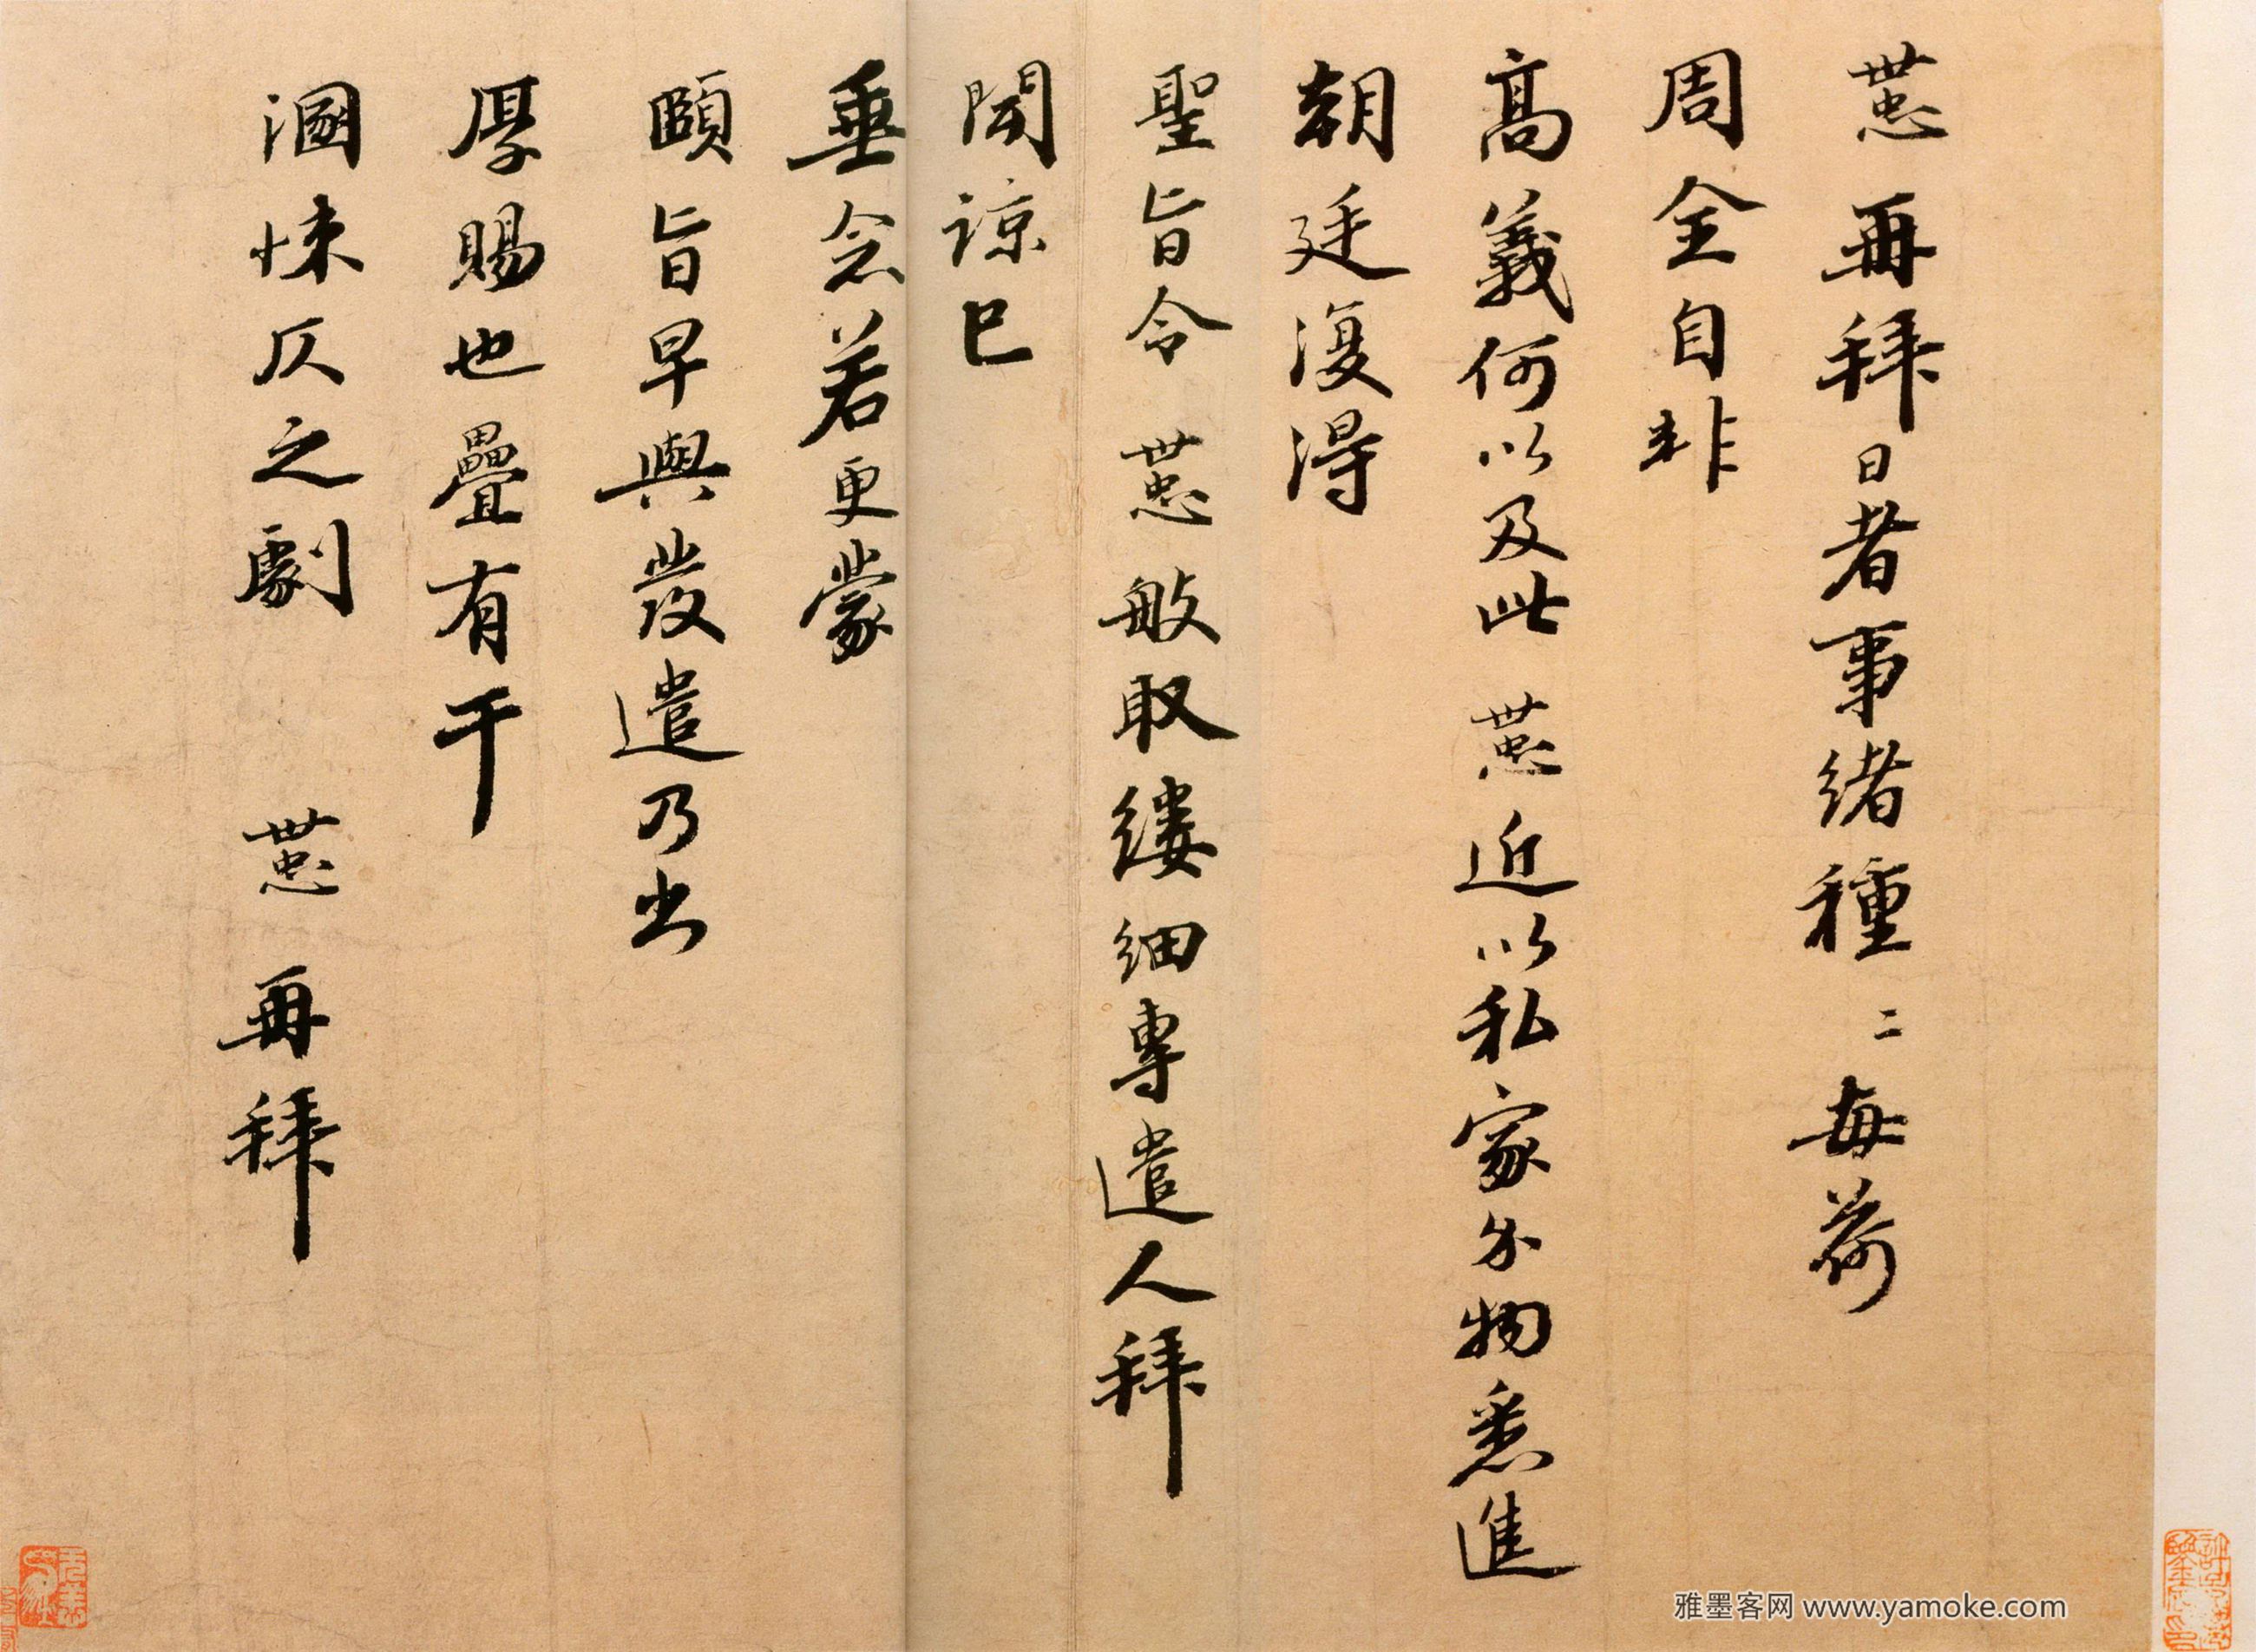 世忠再拜日者事緒種二每荷
周全自非
高義何以及此世忠近以私家分物悉進
朝廷復得
聖旨令世忠般取縷細專遣人拜
聞諒已
垂念若更蒙
頤旨早與發遣乃出
厚賜也疊有干
溷悚仄之劇 世忠再拜
雅墨客网 www.yamoke.com